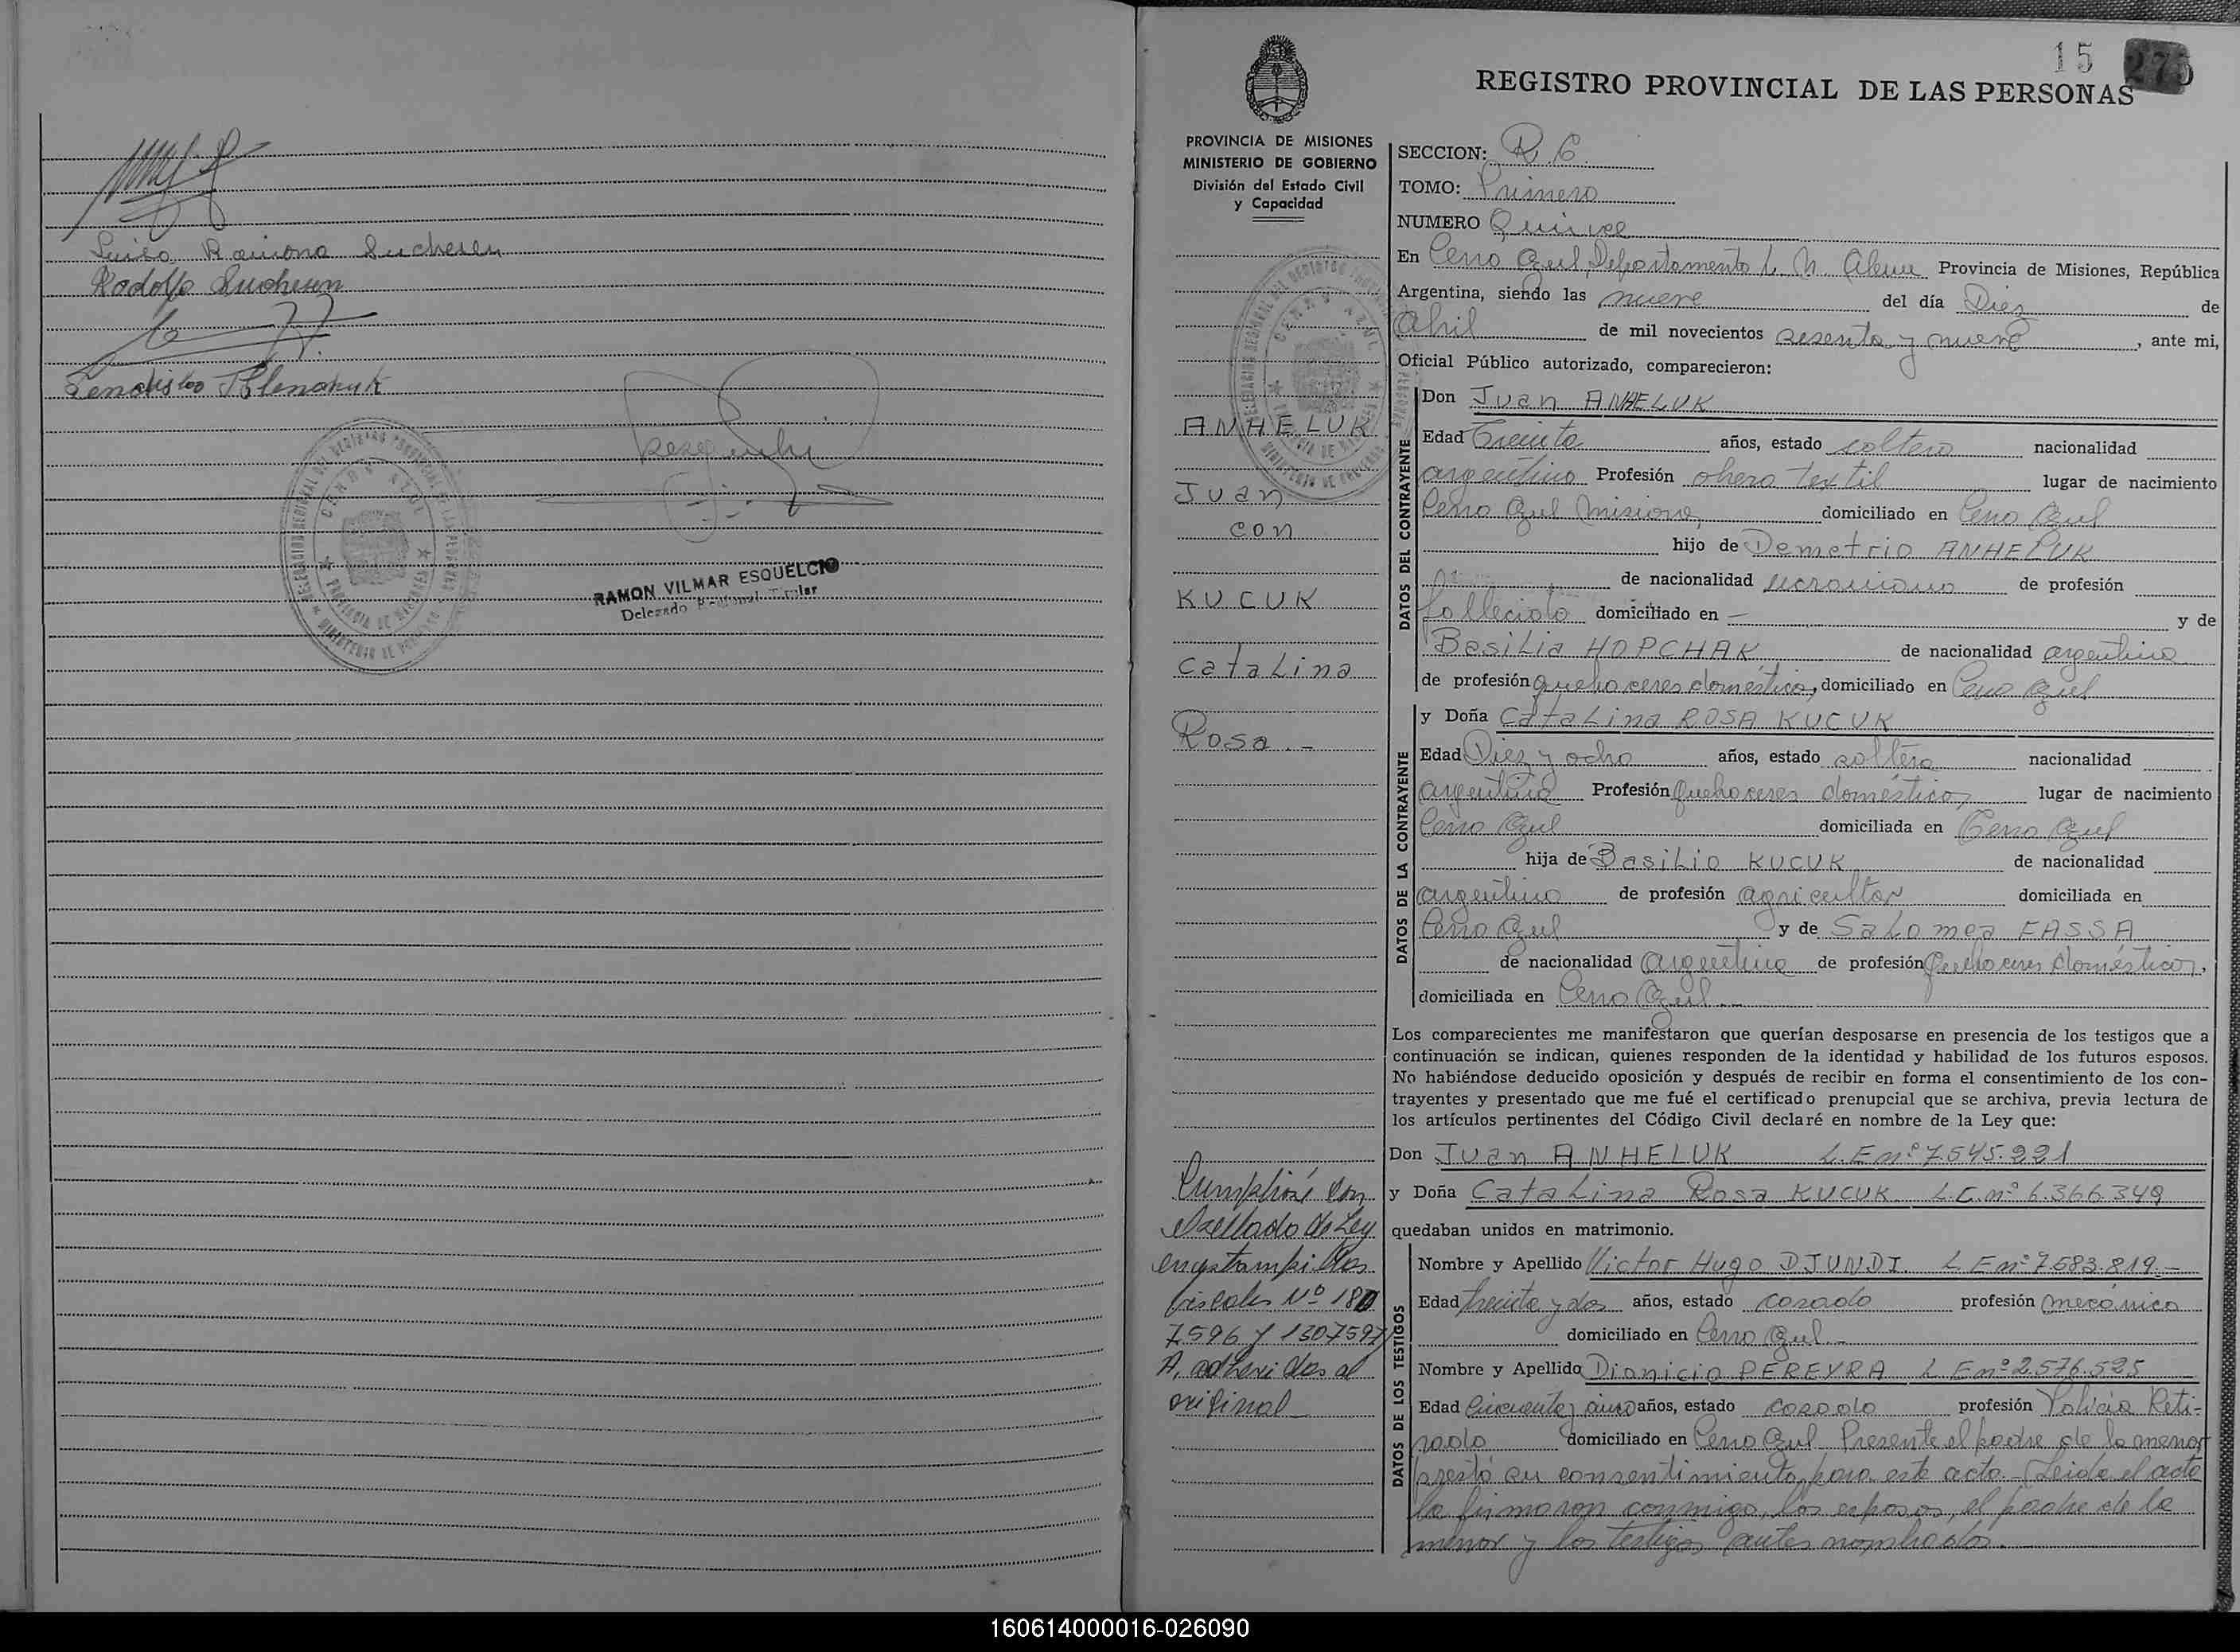 Luisa Ramona Sucheren
Rodolfo Sucheren
RAMON VILMAR ESQUELCIO
Delegado Regional Titular
15 275
REGISTRO PROVINCIAL DE LAS PERSONAS
PROVINCIA DE MISIONES
MINISTERIO DE GOBIERNO
División del Estado Civil
y Capacidad
ANHELUK
Juan
con
KUCUK
Catalina
Rosa.-
Cumplióse con
el sellado de Ley
en estampillas
fiscales Nº 180
7596 y 1307597
A, adheridas al
original
SECCION: R.C.
TOMO: Primero
NUMERO Quince
En Cerro Azul, Departamento L. N. Alem Provincia de Misiones, República
Argentina, siendo las nueve del día Diez de
Abril de mil novecientos sesenta y nueve, ante mi,
Oficial Público autorizado, comparecieron:
DATOS DEL CONTRAYENTE
Don Juan ANHELUK
Edad Treinta años, estado soltero nacionalidad
argentino Profesión obrero textil lugar de nacimiento
Cerro Azul Misiones, domiciliado en Cerro Azul
hijo de Demetrio ANHELUK
de nacionalidad ucraniano de profesión
fallecido domiciliado en — y de
Basilia HOPCHAK de nacionalidad argentina
de profesión quehaceres domésticos, domiciliado en Cerro Azul
DATOS DE LA CONTRAYENTE
y Doña Catalina ROSA KUCUK
Edad Diez y ocho años, estado soltera nacionalidad
argentina Profesión Quehaceres domésticos, lugar de nacimiento
Cerro Azul domiciliada en Cerro Azul
hija de Basilio KUCUK de nacionalidad
argentino de profesión agricultor domiciliada en
Cerro Azul y de Salomea FASSA
de nacionalidad argentina de profesión Quehaceres domésticos,
domiciliada en Cerro Azul.-
Los comparecientes me manifestaron que querían desposarse en presencia de los testigos que a
continuación se indican, quienes responden de la identidad y habilidad de los futuros esposos.
No habiéndose deducido oposición y después de recibir en forma el consentimiento de los con-
trayentes y presentado que me fué el certificado prenupcial que se archiva, previa lectura de
los artículos pertinentes del Código Civil declaré en nombre de la Ley que:
Don Juan ANHELUK L.E nº 7.545.221
y Doña Catalina Rosa KUCUK L.C. nº 6.366.349
quedaban unidos en matrimonio.
DATOS DE LOS TESTIGOS
Nombre y Apellido Victor Hugo DJUNDI. L E nº 7.583.819.-
Edad treinta y dos años, estado casado profesión mecánico
domiciliado en Cerro Azul.-
Nombre y Apellido Dionicio PEREYRA L E nº 2.576.525
Edad Cincuenta y cinco años, estado casado profesión Policía Reti-
rado domiciliado en Cerro Azul. Presente el padre de la menor
prestó su consentimiento para este acto.- Leida el acta
la firmaron conmigo, los esposos, el padre de la
menor y los testigos antes nombrados.
160614000016-026090